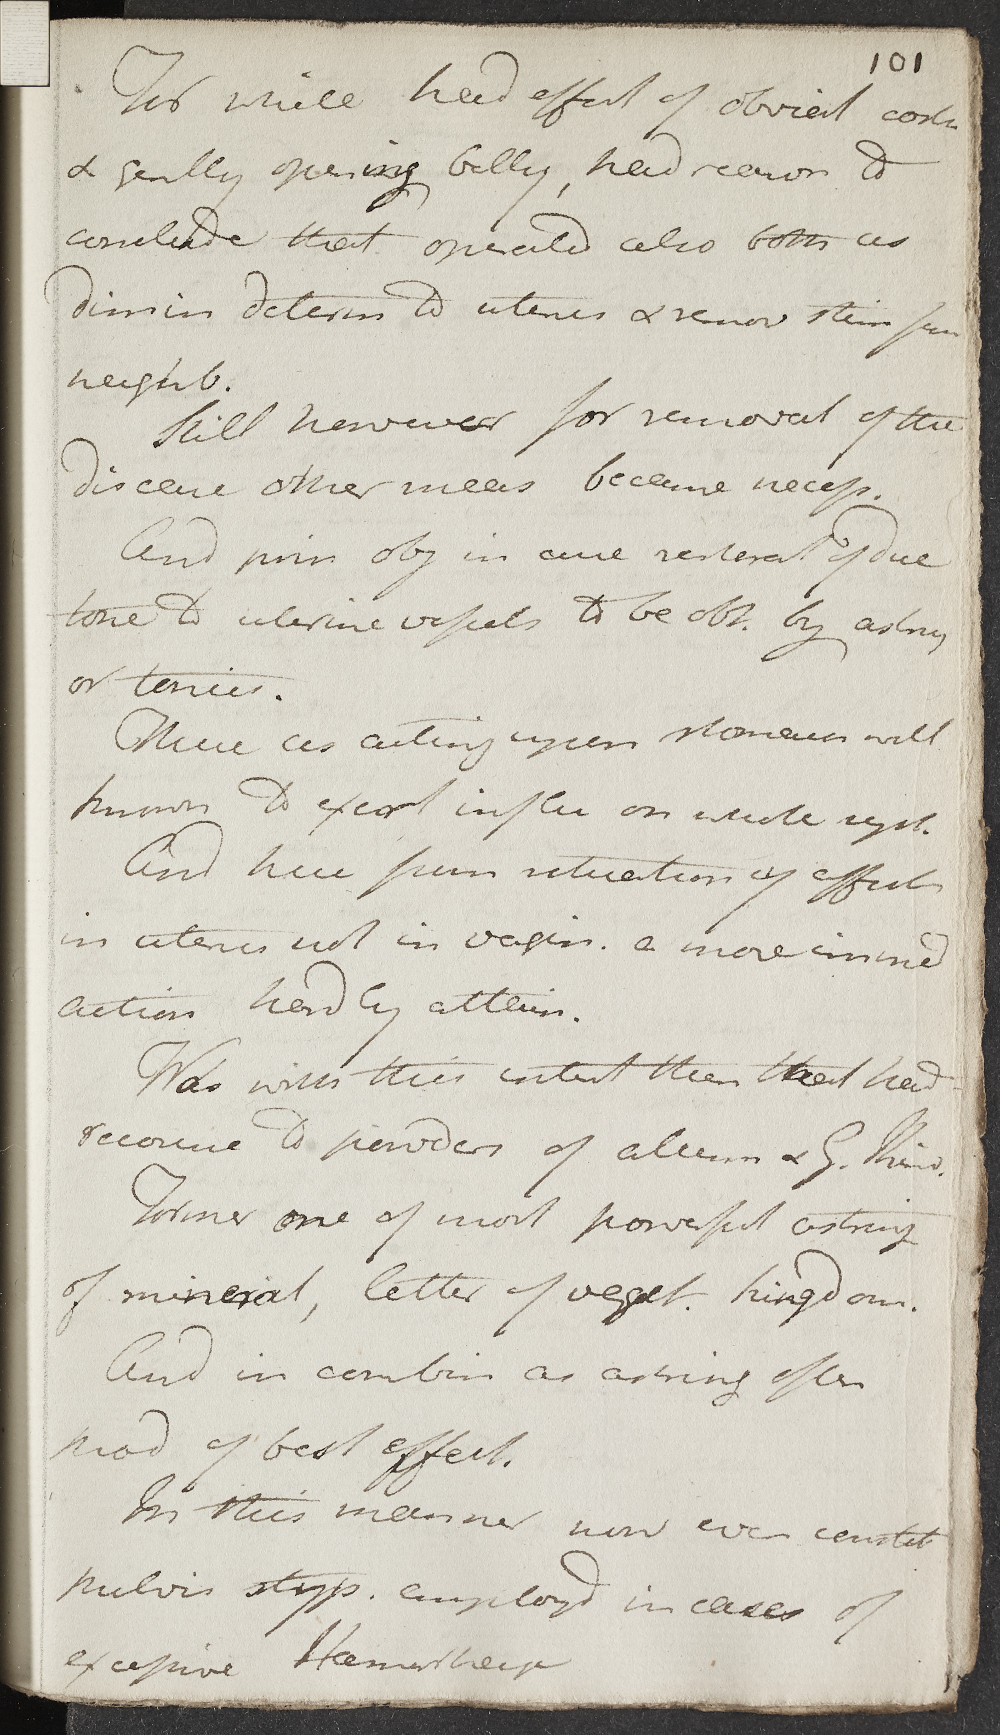 101
For while had effect of obviat costiv
& gently opening belly, had reason to
conclude that operated also both as
dimin determ to uterus & remov stim from
neighb.
Still however for removal of the
disease other means became necess.
And prin obj in cure restorat of due
tone to uterine vessels to be obt. by astring
or tonics.
These as acting upon stomach well
known to exert influ on whole syst.
And here from situation of effect
in uterus not in vagin. a more immed
action hardly attain.
Was with this intent then that had
recourse to powders of alum & G. Kino.
Former one of most powerful astring
of mineral, latter of veget. kingdom.
And in combin as astring often
prod of best effect.
In this manner now even constit
pulvis styp. employd in cases of
excessive Hæmorrhage